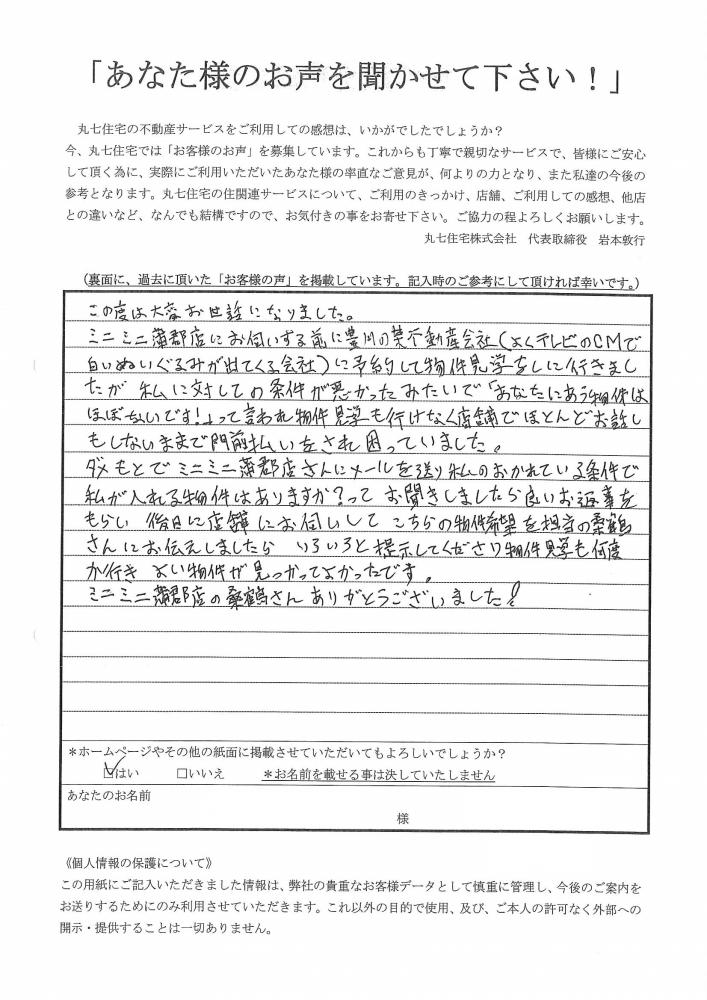 「あなた様のお声を聞かせて下さい！」
丸七住宅の不動産サービスをご利用しての感想は、いかがでしたでしょうか？
今、丸七住宅では「お客様のお声」を募集しています。これからも丁寧で親切なサービスで、皆様にご安心
して頂く為に、実際にご利用いただいたあなた様の率直なご意見が、何よりの力となり、また私達の今後の
参考となります。丸七住宅の住関連サービスについて、ご利用のきっかけ、店舗、ご利用しての感想、他店
との違いなど、なんでも結構ですので、お気付きの事をお寄せ下さい。ご協力の程よろしくお願いします。
丸七住宅株式会社　代表取締役　岩本敦行
（裏面に、過去に頂いた「お客様の声」を掲載しています。記入時のご参考にして頂ければ幸いです。）
この度は大変お世話になりました。
ミニミニ蒲郡店にお伺いする前に豊川の某不動産会社(よくテレビのCMで
白いぬいぐるみが出てくる会社)に予約して物件見学をしに行きまし
たが 私に対しての条件が悪かったみたいで「あなたにあう物件は
ほぼないです!」って言われ物件見学も行けなく店舗でほとんどお話し
もしないままで門前払いをされ困っていました。
ダメもとでミニミニ蒲郡店さんにメールを送り私のおかれている条件で
私が入れる物件はありますか?って お聞きしましたら良いお返事を
もらい 後日に店舗にお伺いして こちらの物件希望を担当の桑鶴
さんにお伝えしましたら いろいろと提示してくださり物件見学も何度
か行き よい物件が見つかってよかったです。
ミニミニ蒲郡店の桑鶴さんありがとうございました!
＊ホームページやその他の紙面に掲載させていただいてもよろしいでしょうか？
☑はい　□いいえ　＊お名前を載せる事は決していたしません
あなたのお名前
様
《個人情報の保護について》
この用紙にご記入いただきました情報は、弊社の貴重なお客様データとして慎重に管理し、今後のご案内を
お送りするためにのみ利用させていただきます。これ以外の目的で使用、及び、ご本人の許可なく外部への
開示・提供することは一切ありません。